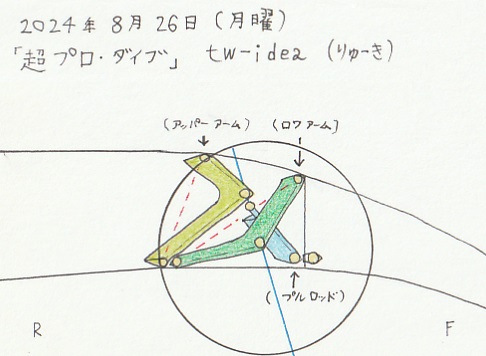 2024年 8月 26日 (月曜)
「超プロ・ダイブ」 tw-idea (りゅーき)
(アッパーアーム) (ロワアーム]
(プルロッド)
R F